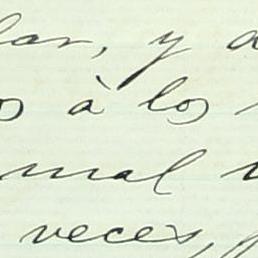 lar, y d
os à los
mal
veces,